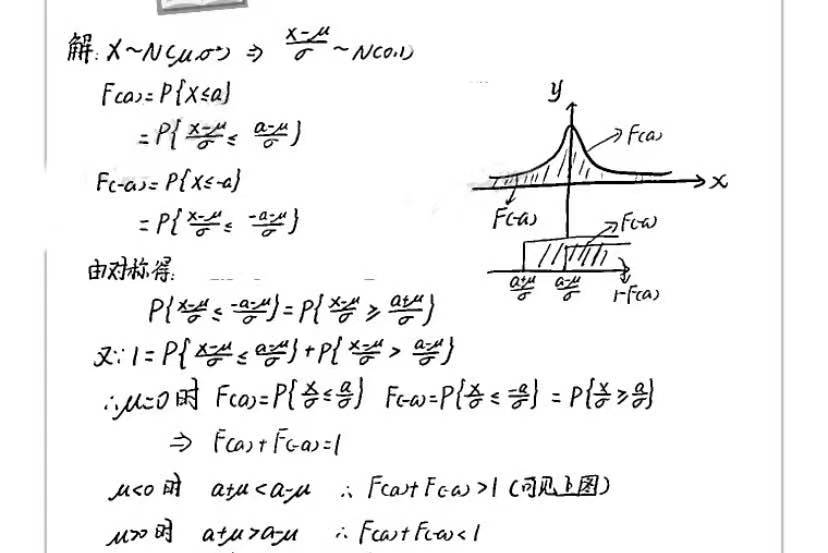 解: X~N(μ,σ²) ⇒ (X-μ)/σ ~ N(0,1)
F(a)=P{X≤a}
=P{(X-μ)/σ ≤ (a-μ)/σ}
F(-a)=P{X≤-a}
=P{(X-μ)/σ ≤ (-a-μ)/σ}
y
F(a)
x
F(-a)
F(-a)
(a+μ)/σ (a-μ)/σ 1-F(a)
由对称得:
P{(X-μ)/σ ≤ (-a-μ)/σ}=P{(X-μ)/σ ≥ (a+μ)/σ}
又∵1=P{(X-μ)/σ ≤ (a-μ)/σ}+P{(X-μ)/σ > (a-μ)/σ}
∴μ=0时 F(a)=P{X/σ ≤ a/σ} F(-a)=P{X/σ ≤ -a/σ} = P{X/σ ≥ a/σ}
⇒ F(a)+F(-a)=1
μ<0时 a+μ<a-μ ∴ F(a)+F(-a)>1 (可见上图)
μ>0时 a+μ>a-μ ∴ F(a)+F(-a)<1